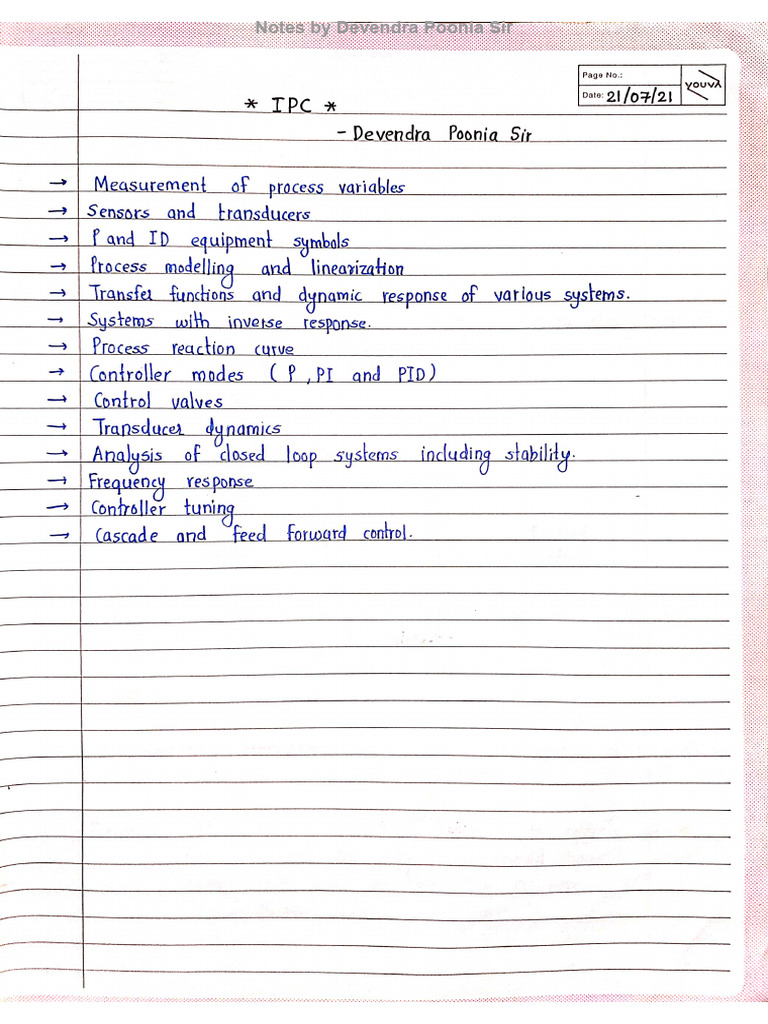 Notes by Devendra Poonia Sir
Page No.:
Date: 21/07/21
YOUVA
* IPC *
- Devendra Poonia Sir
→ Measurement of process variables
→ Sensors and transducers
→ P and ID equipment symbols
→ Process modelling and linearization
→ Transfer functions and dynamic response of various systems.
→ Systems with inverse response.
→ Process reaction curve
→ Controller modes (P, PI and PID)
→ Control valves
→ Transducer dynamics
→ Analysis of closed loop systems including stability.
→ Frequency response
→ Controller tuning
→ Cascade and feed forward control.